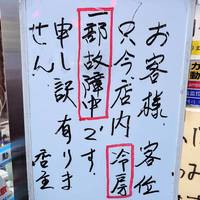 お客様、客位
只今、店内冷房
一部故障中です。
申し訳有りま
せん。
店主